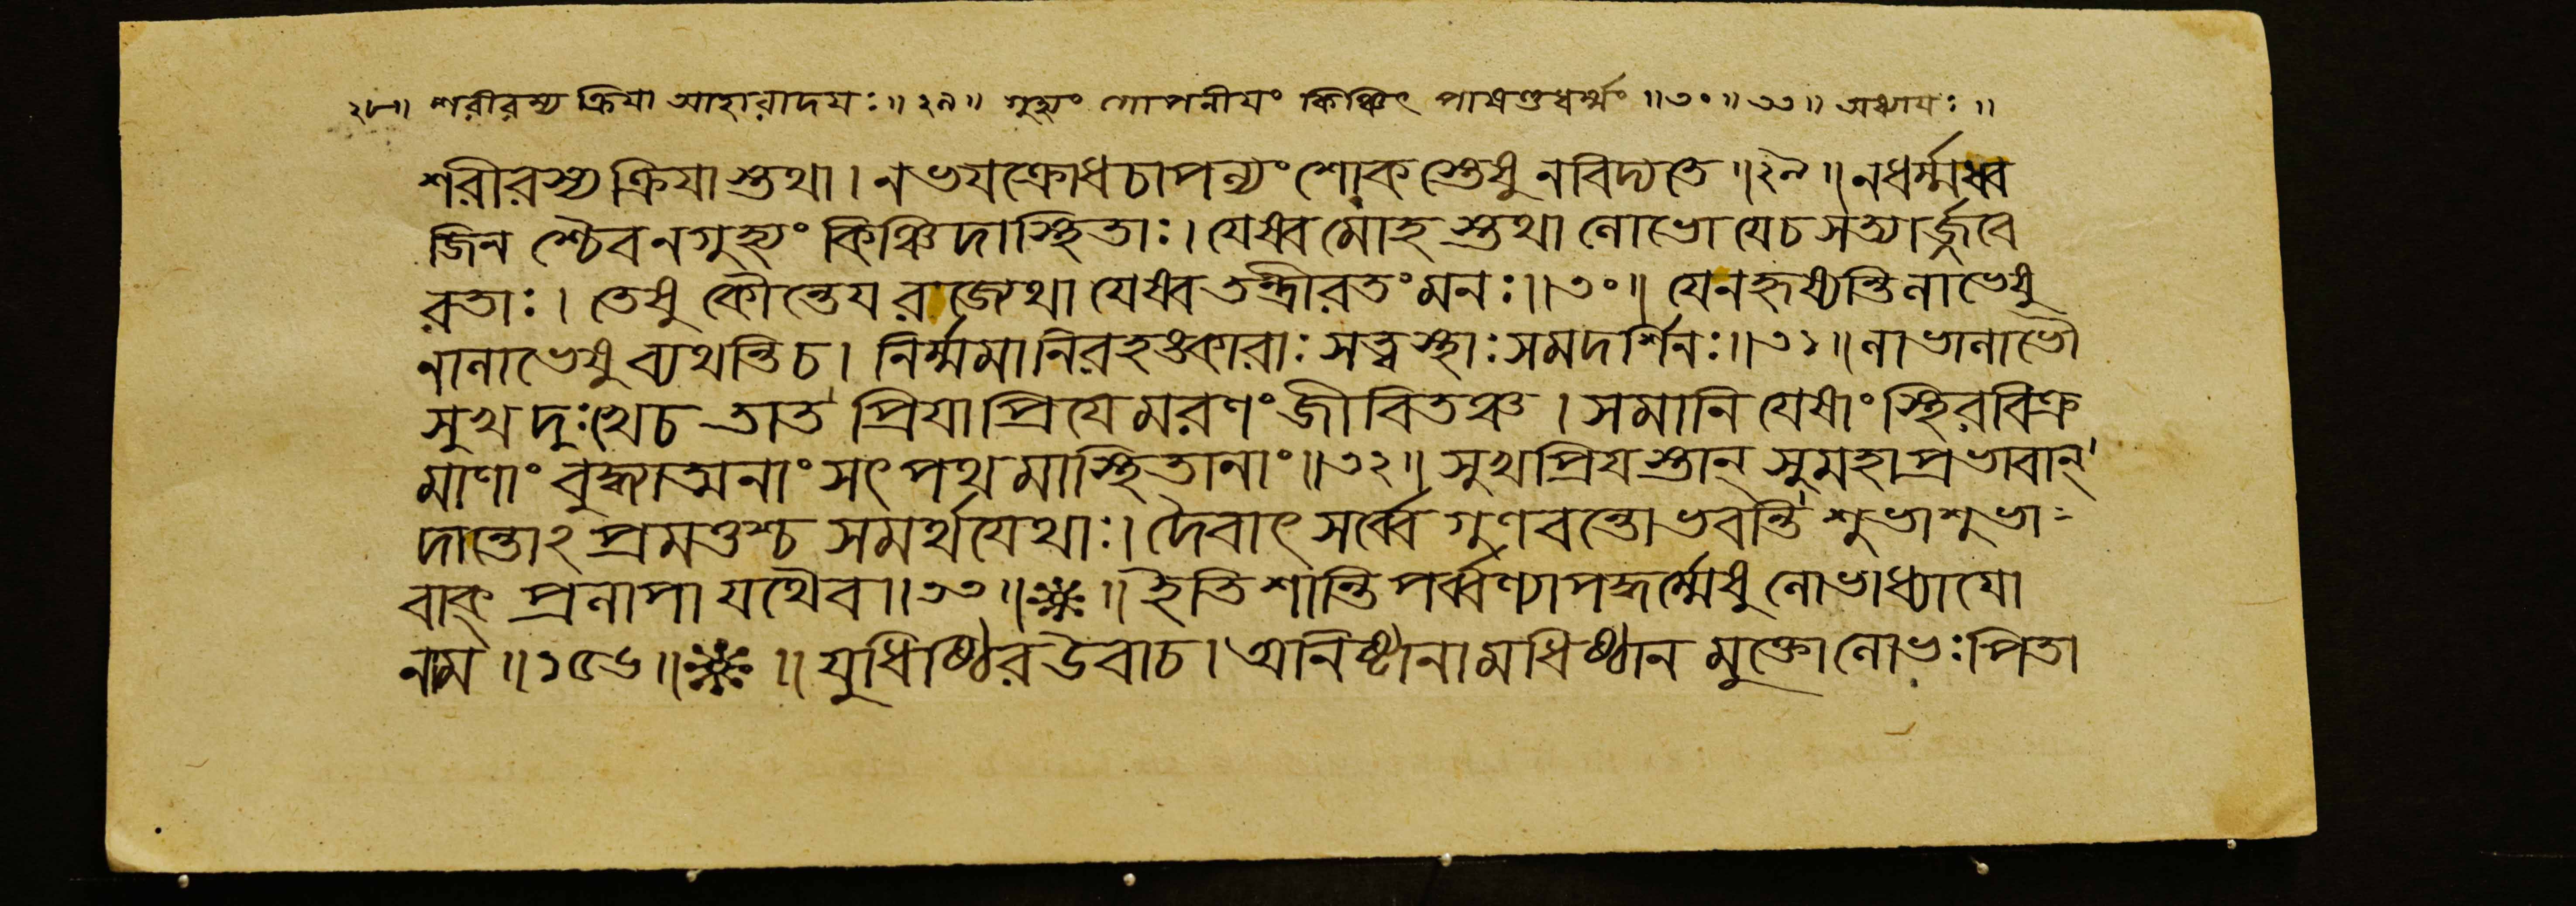 ২৮॥ শরীরস্য ক্রিযা আহারাদযঃ॥ ২৯॥ গুহ্যং গোপনীযং কিঞ্চিৎ পাষণ্ডধর্ম্মং ॥৩০॥ ৩৩॥ অধ্যাযঃ ॥
শরীরস্য ক্রিযাস্তথা। নভযক্রোধচাপল্যং শোকস্তেষু নবিদ্যতে ॥২৯॥ নধর্ম্মধ্ব
জিন শ্চৈবনগুহ্যং কিঞ্চিদাস্থিতাঃ। যেষ্বমোহস্তথা লোভো যেচসত্যার্জ্জবে
রতাঃ। তেষু কৌন্তেয রজ্যেথা যেষ্বতন্ত্রীরতং মনঃ॥৩০॥ যেনহৃষ্যন্তিলাভেষু
নালাভেষুব্যথন্তিচ। নির্ম্মমানিরহঙ্কারাঃ সত্ত্বস্থাঃ সমদর্শিনঃ॥৩১॥ লাভালাভৌ
সুখদুঃখেচ তাত প্রিযাপ্রিযেমরণং জীবিতঞ্চ। সমানি যেষাং স্থিরবিক্র
মাণাং বুদ্ধ্যাত্মনাং সৎপথমাস্থিতানাং॥৩২॥ সুখপ্রিযস্তান্ সুমহাপ্রভাবান্
দান্তোঽপ্রমত্তশ্চ সমর্থযেথাঃ। দৈবাৎ সর্ব্বে গুণবন্তোভবন্তি শুভাশুভা-
বাক্ প্রলাপা যথৈব॥৩৩॥ ॥ ইতি শান্তিপর্ব্বণ্যাপদ্ধর্ম্মেষু লোভাধ্যাযো
নাম ॥১৫৬॥ ॥ যুধিষ্ঠিরউবাচ। অনিষ্টানামধিষ্ঠান মুক্তোলোভঃপিতা